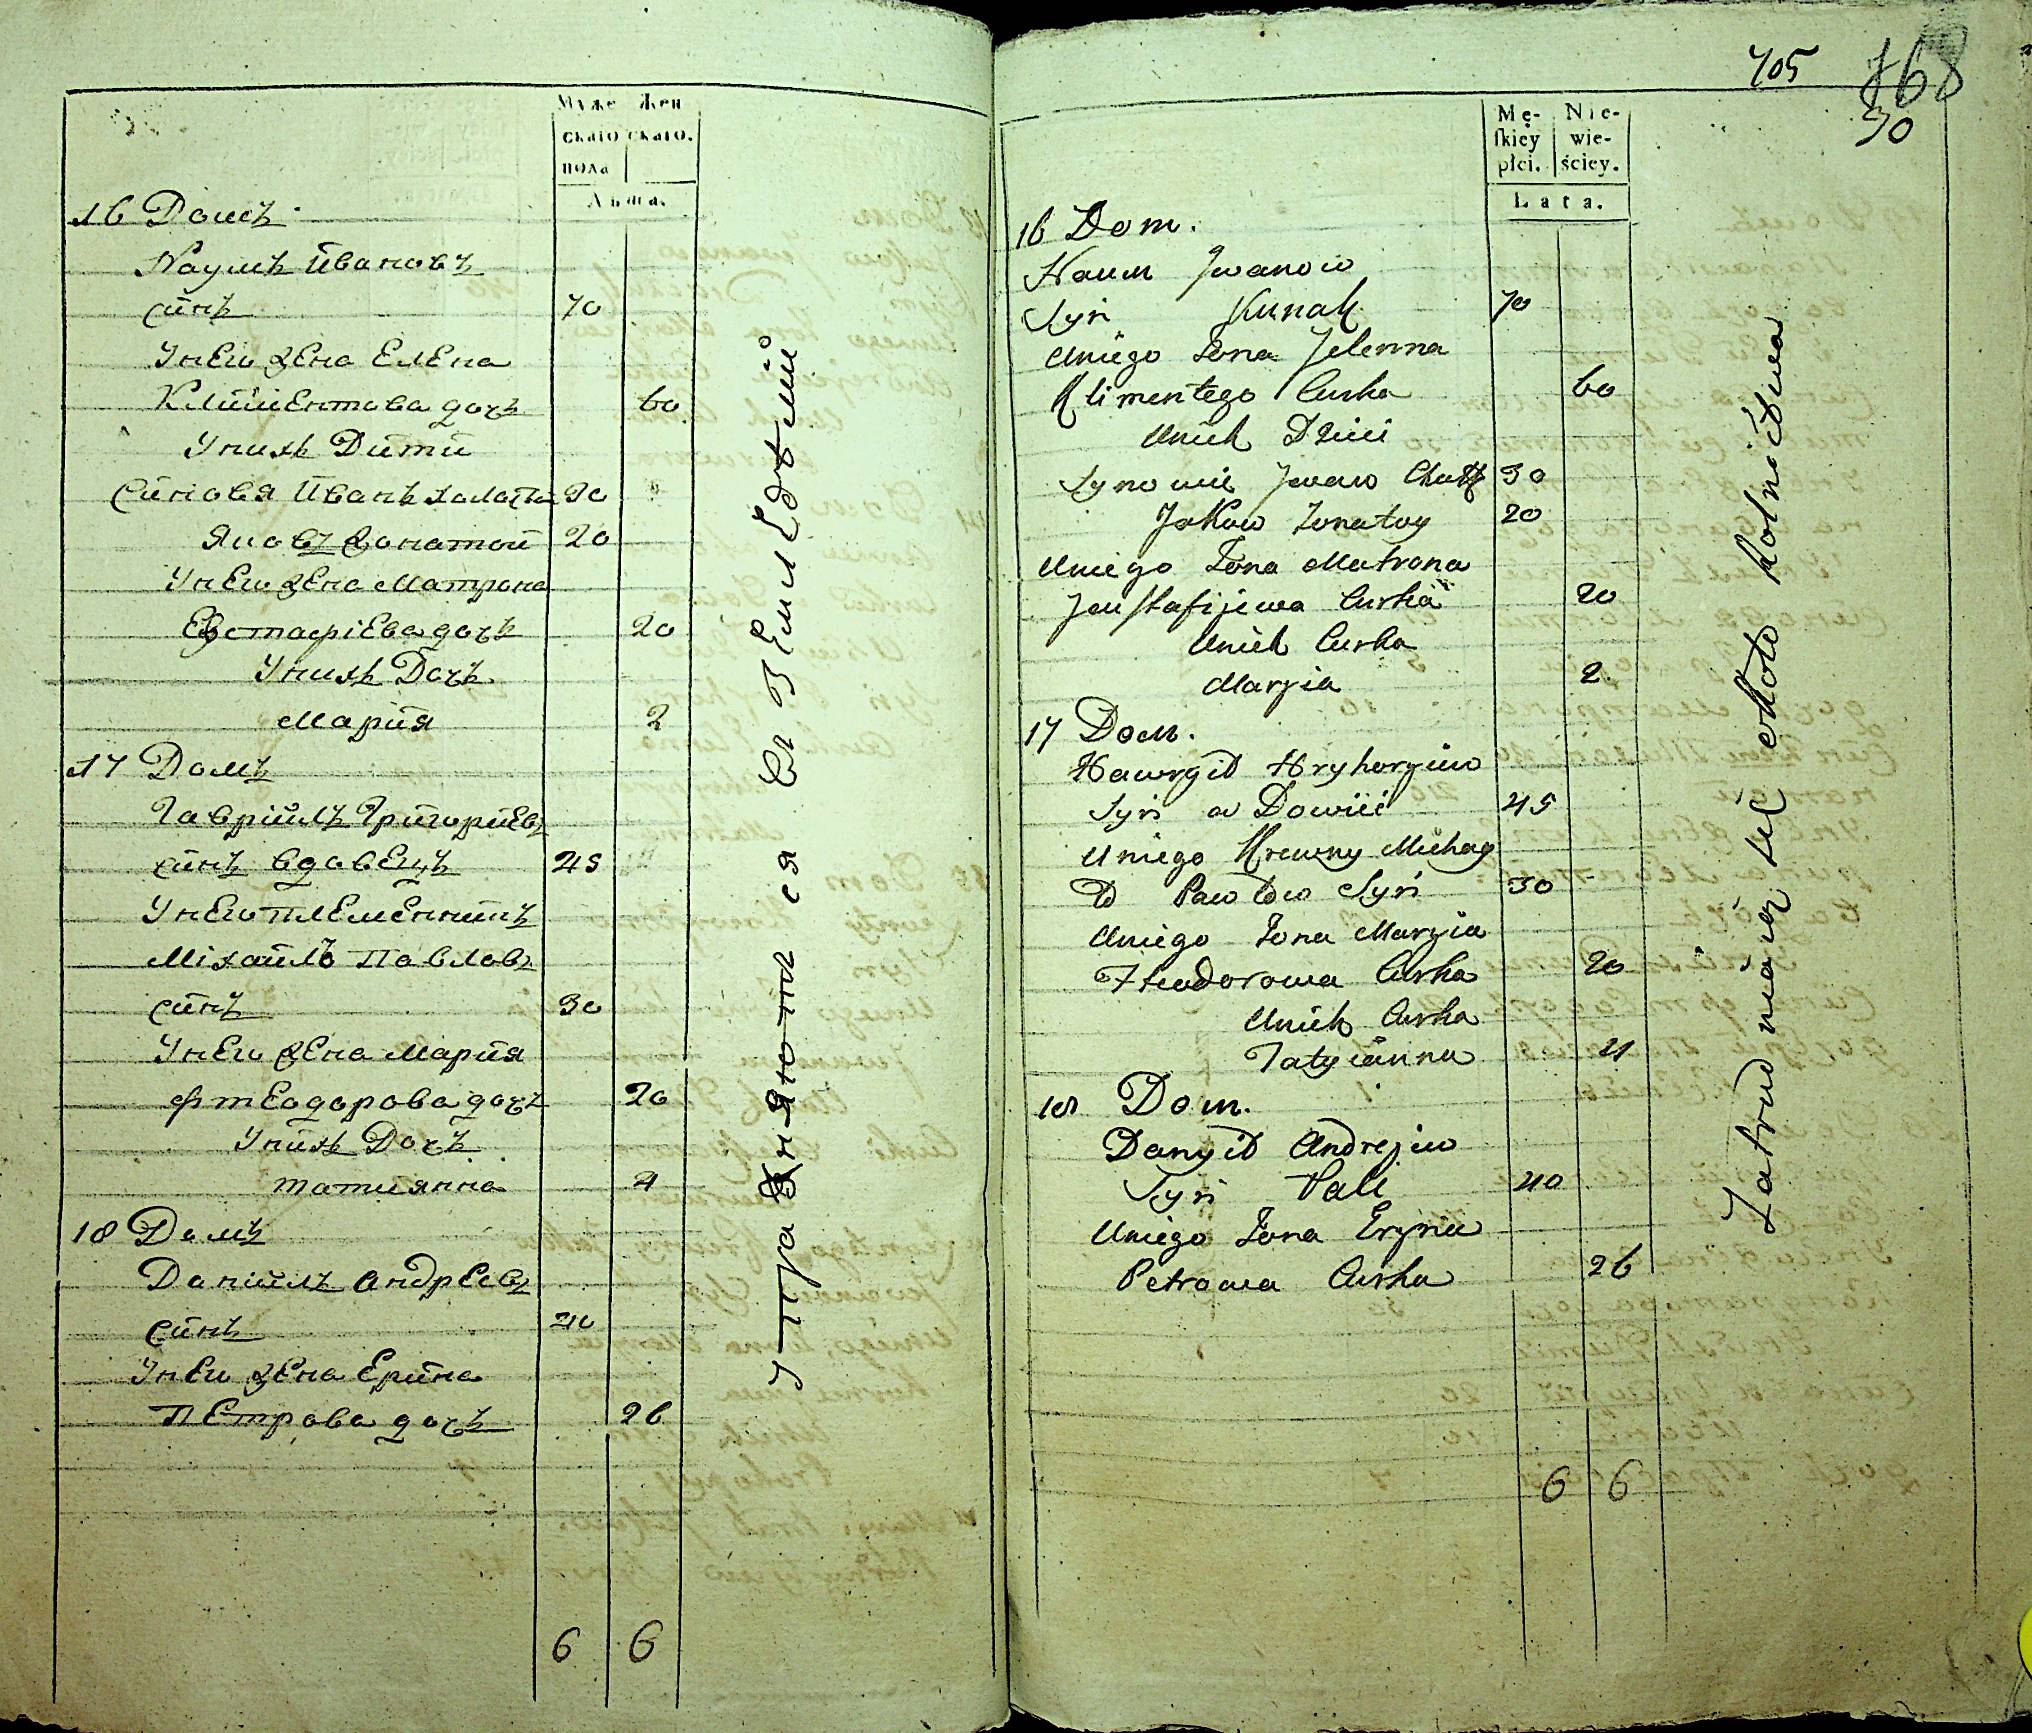 Муже Жен
скаго скаго.
пола
Лѣта.
16 Домъ
Наумъ Ивановъ
синъ 70
Унего жена Елена
Климентова дочь 60
Унихъ Дити
синовя Иванъ холостъ 30
Яковъ жонатой 20
Унего жена Матрона
Евстафіева дочь 20
Унихъ Дочь
Мария 2
17 Домъ
Гавриилъ Григориевъ
синъ вдовецъ 45
Унего племенникъ
Михаилъ Павловъ
синъ 30
Унего жена Мария
Фтеодорова дочь 20
Унихъ Дочь
татиянна 4
18 Домъ
Даниилъ Андреевъ
синъ 40
Унего жена Ерина
Петрова дочь 26
6 6
Упражняются въ Земледѣлии
705 768
30
Mę- Nie-
skiey wie-
płci. ściey.
Lata.
16 Dom.
Naum Iwanow
Syn Kunak 70
Uniego Żona Jelenna
Klimentego Curka 60
Unich Dzici
Synowie Iwan 30
Jakow Żonatoy 20
Uniego Żona Matrona
Jeustafijewa Curka 20
Unich Curka
Maryia 2
17 Dom.
Hawrył Hryhoryiw
Syn a Dowiic 45
Uniego Krewny Michay
ł Pawłow Syn 30
Uniego Żona Maryia
Fteodorowa Curka 20
Unich Curka
Tatyianna 4
18 Dom.
Danyił Andrejiw
Syn Pali 40
Uniego Żona Eryna
Petrowa Curka 26
6 6
Zatrudniaią się około Rolnictwa